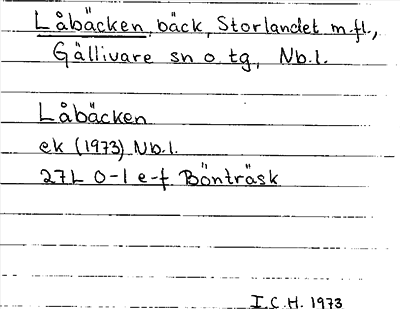 Låbäcken, bäck, Storlandet m.fl.,
Gällivare sn o tg, Nb.l.
Låbäcken
ek (1973) Nb.l.
27L 0-1 e-f Bönträsk
I.C.H. 1973